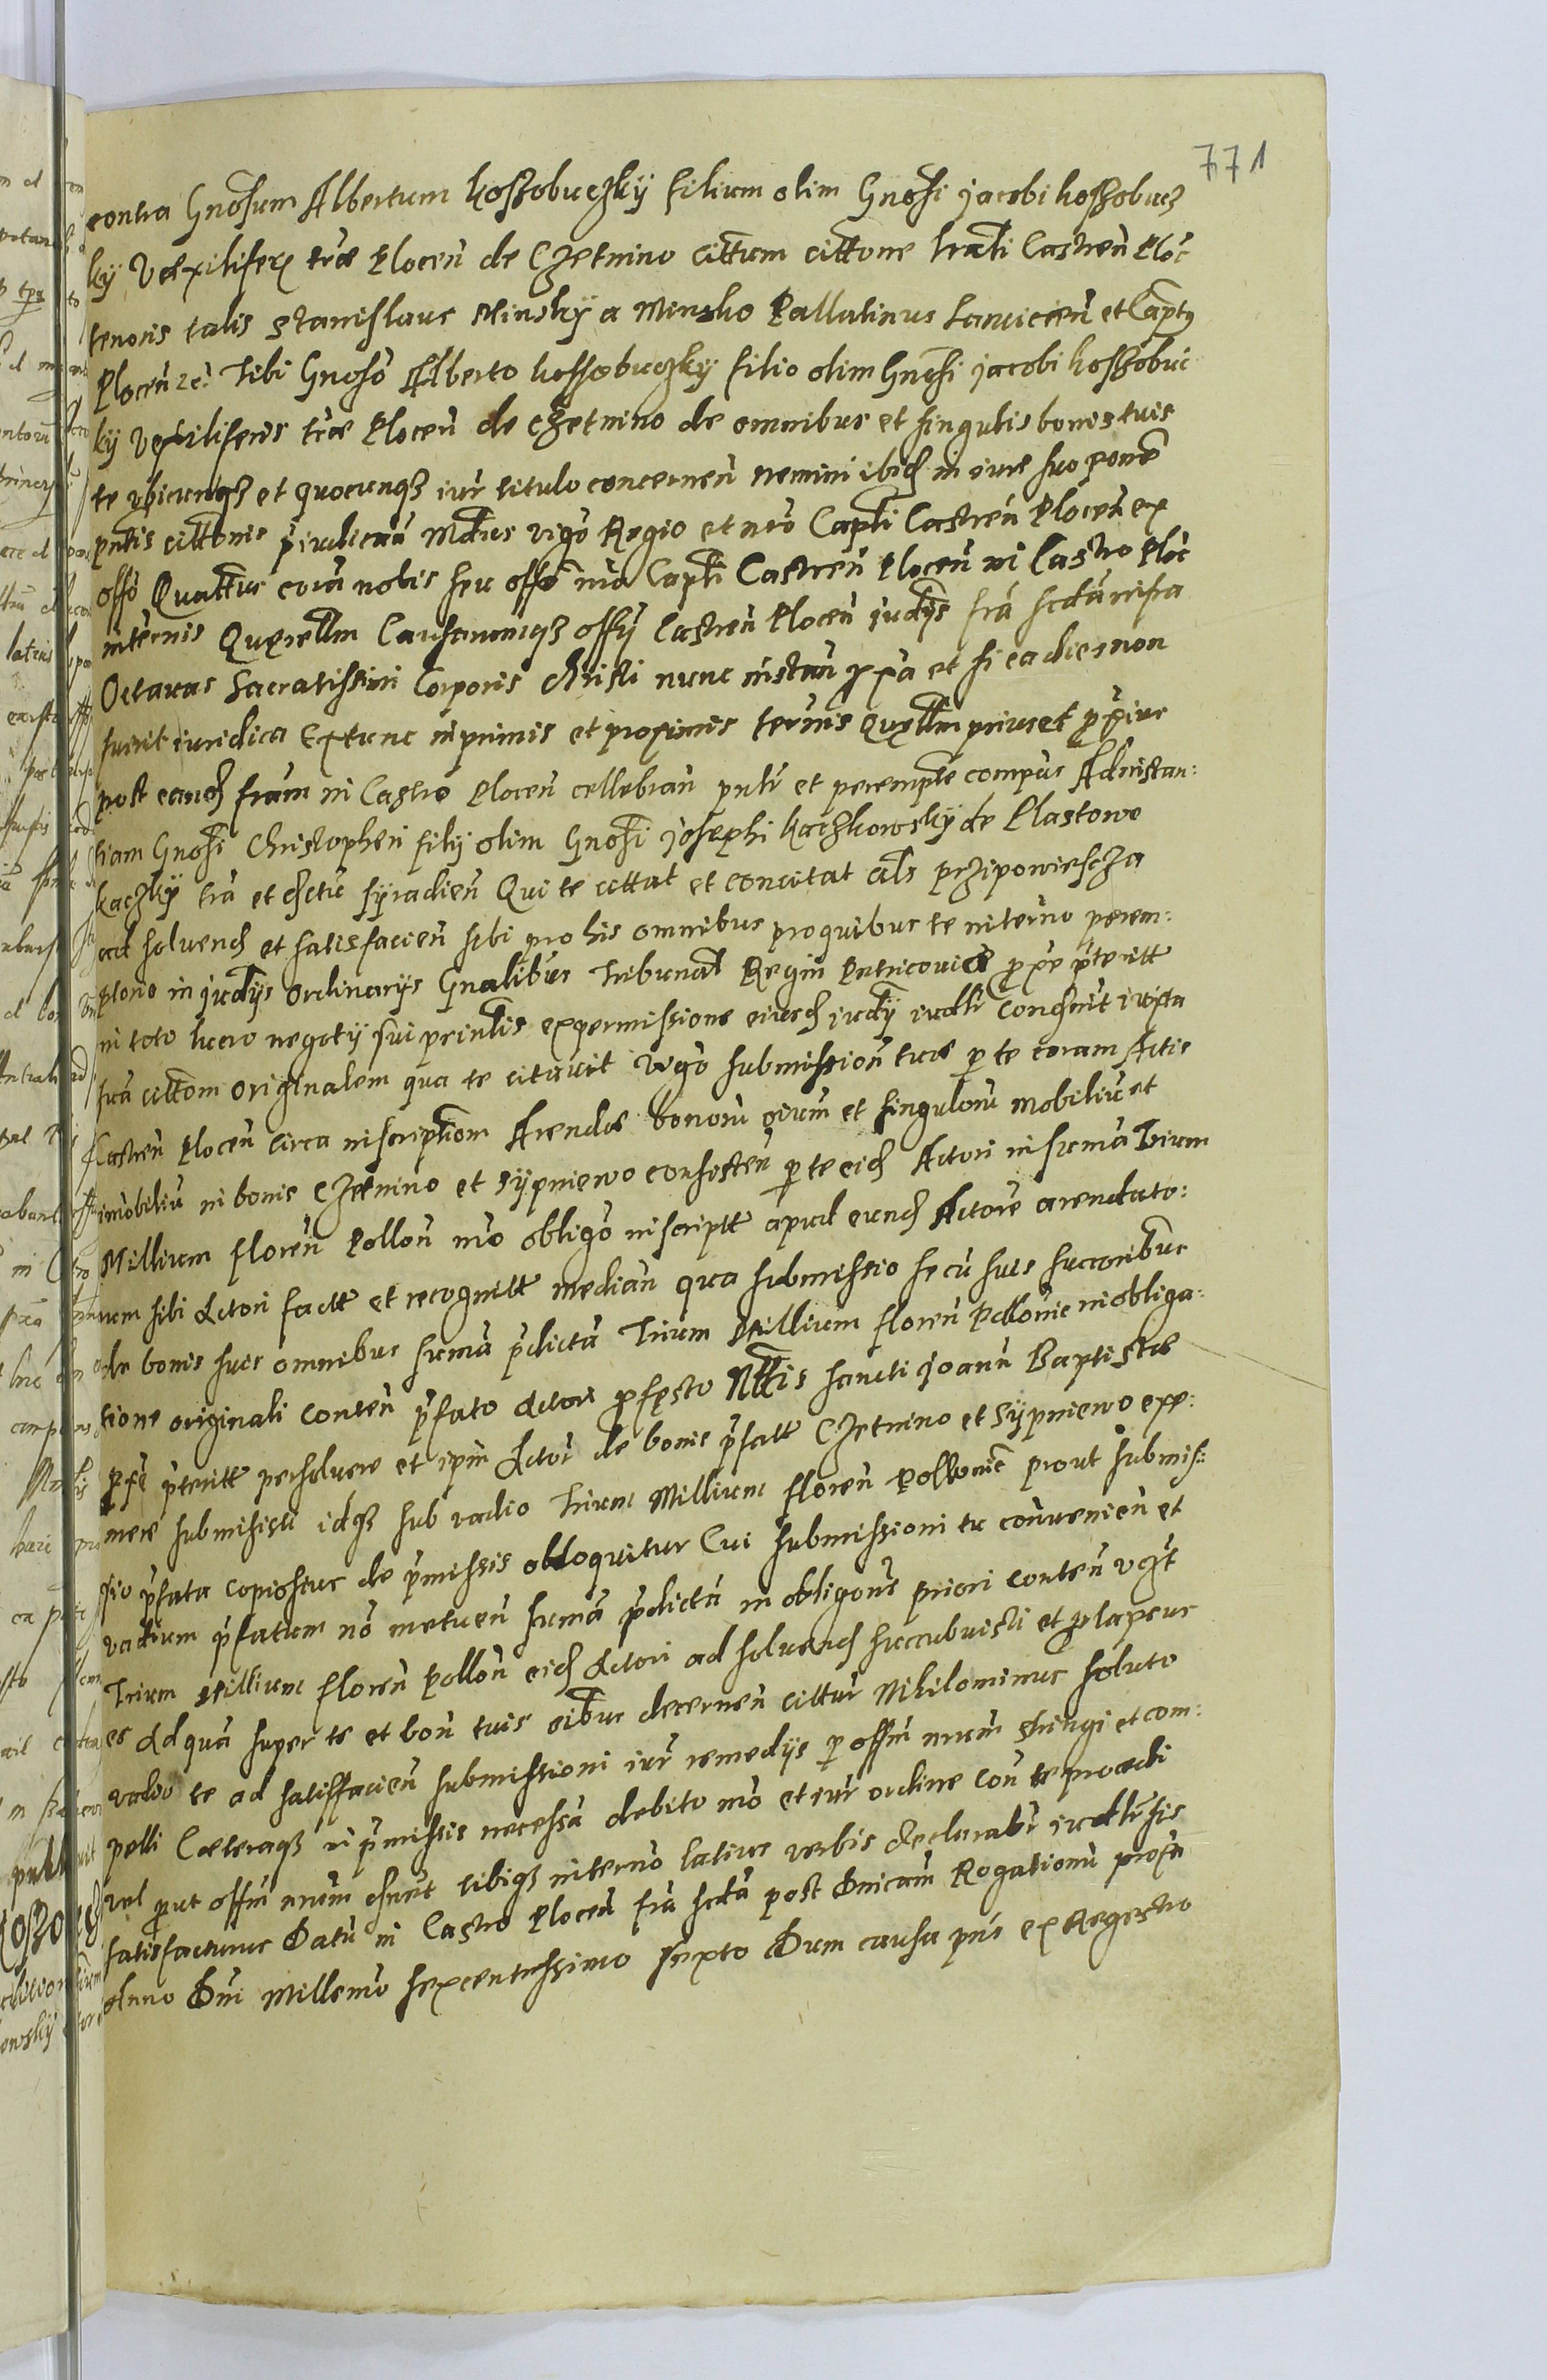 771
contra Gnosum Albertum Kossobuczky filium olim Gnosi Jacobi Kossobucz
ky Vexiliferi trae Plocen de Czetnino cittum cittone Castren Ploc
tenoris talis Stanislaus Minsky a Minsko Pallatinus Lancicien et Capts
Plocen zc Tibi Gnoso Alberto Kossobuczky filio olim Gnosi Jacobi Kossobuc
ky Vexiliferis trae Plocen de Czetnino de omnibus et singulis bonis tuis
te ubicunqz et quocunqz iur titulo concernen nemini ibid in iure suo
pntis cittonis pиudican Mdtus vigo Regio et nro Capti Castren Plocen ex
offo Quattus cora nobis seu offo nro Capti Castren Plocen in Castro Ploc
internis Querellm Causarumqz offy Castren Plocen judys fra scda infra
Octavas Sacratissimi Corporis Christi nunc instan pxa et si ea dies non
fuerit iuridica Extunc in primis et proximis termis Qurellm prius et pxius
post eand fram in Castro Plocen cellebran pnlr et perempte compus Ad instan:
tiam Gnosi Christopheri filij olim Gnosi Josephi Kaczkowsky de Plastowo
Kaczky tra et Syradien Qui te cittat et concitat als przipowiescza
ad solvend et satisfacien sibi pro his omnibus pro quibus te in termo perem:
ptorio in judys ordinarys Gnalibus Tribunal Regni Petricovien pxe pteritt
in toto lucro negoty sui prinlis ex permissione eiusd judy iudlr condemnt iuxta
sua cittom originalem qua te citavit vigo submission tuae p te coram Actis
Castren Plocen circa inscriptiom Arendae bonoru oium et singuloru mobiliu et
imobiliu in bonis Czetnino et Sypniewo consisten p te eid Actori in suma Trium
Millium floren Pollon mo obligo inscriptt apud eund Actore arendato:
rum sibi Actori factt et recognitt median qua submissio se cu suis succoribus
de bonis suis omnibus suma pdicta Trium Millium floren Pollonic in obliga:
tione originali conten pfato Actori p festo Nttis Sancti Joann Baptistae
pxe pteritt persolvere et ipm Actor de bonis pfatt Czetnino et Sypniewo exi:
mere submisisti idqz sub vadio Trium Millium floren Pollonic prout submis:
sio pfata copiosius de pmissis obloquitur Cui submissioni tu convenien et
vadium pfatum no metuen suma pdicta in obligone priori conten
Trium Millium floren Pollon eid Actori ad solvend succubuisti et plapsus
es Ad qua super te et bon tuis oibus decernen cittus Nihilominus soluto
vadio te ad satisfacien submissioni iur remedys p offm nrum stringi et com:
pelli Caeteraqz in pmissis necessa debito mo et iur ordine con te procedi
vel put offm nrum tibiqz in termo latius verbis declarabr iudlr sis
satisfacturus Datu in Castro Plocen fra scda post Dnicam Rogationu proxa
Anno Dni Millemo sexcentessimo sexto Dum causa pns ex Regestro